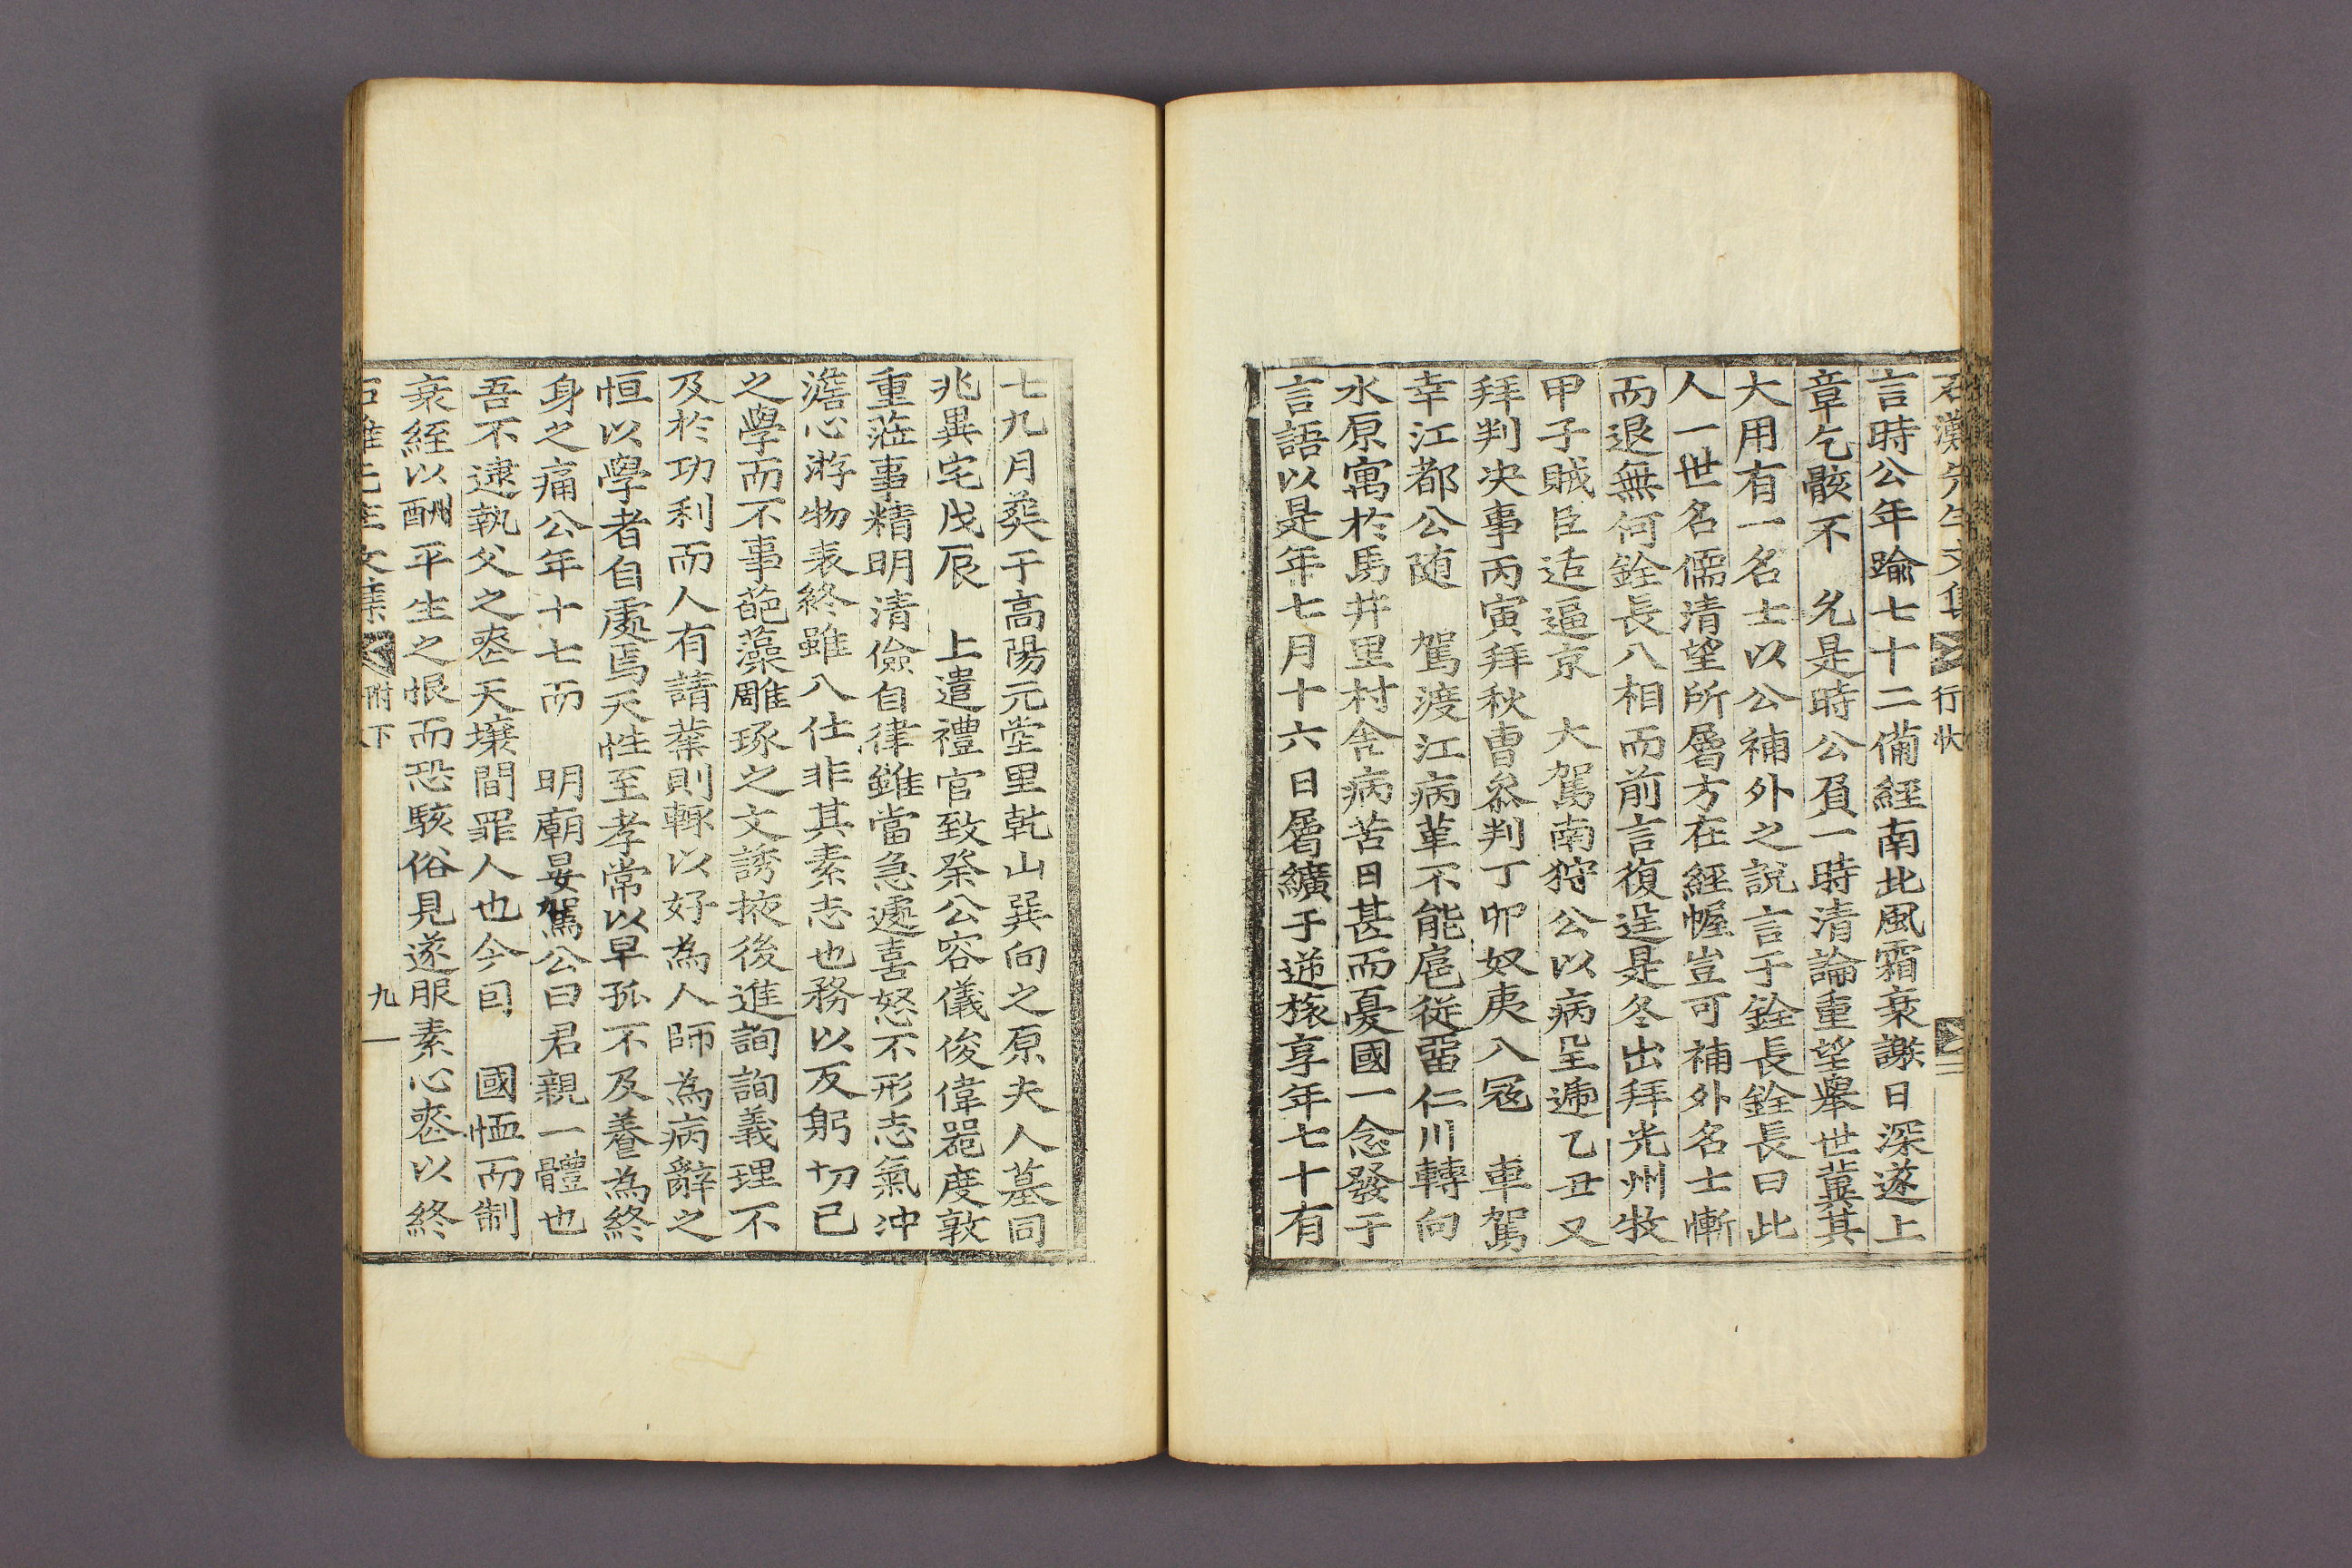 石灘先生文集 行狀
言時公年踰七十二備經南北風霜衰謝日深遂上
章乞骸不 允是時公負一時清論重望舉世冀其
大用有一名士以公補外之說言于銓長銓長曰此
人一世名儒清望所屬方在經幄豈可補外名士慚
而退無何銓長入相而前言復逞是冬出拜光州牧
甲子賊臣适逼京 大駕南狩公以病呈遞乙丑又
拜判决事丙寅拜秋曹參判丁卯奴夷入冦 車駕
幸江都公随 駕渡江病革不能扈從留仁川轉向
水原寓於馬井里村舍病苦日甚而憂國一念發于
言語以是年七月十六日屬纊于逆旅享年七十有
七九月葬于高陽元堂里乾山巽向之原夫人墓同
兆異宅戊辰 上遣禮官致祭公容儀俊偉器度敦
重莅事精明清儉自律雖當急遽喜怒不形志氣冲
澹心游物表終雖入仕非其素志也務以反躬切己
之學而不事葩藻雕琢之文誘掖後進詢詢義理不
及於功利而人有請業則輒以好為人師為病辭之
恒以學者自處焉天性至孝常以早孤不及養為終
身之痛公年十七而 明廟晏駕公曰君親一體也
吾不逮執父之喪天壤間罪人也今因 國恤而制
衰絰以酬平生之恨而恐駭俗見遂服素心喪以終
石灘先生文集 附下 九